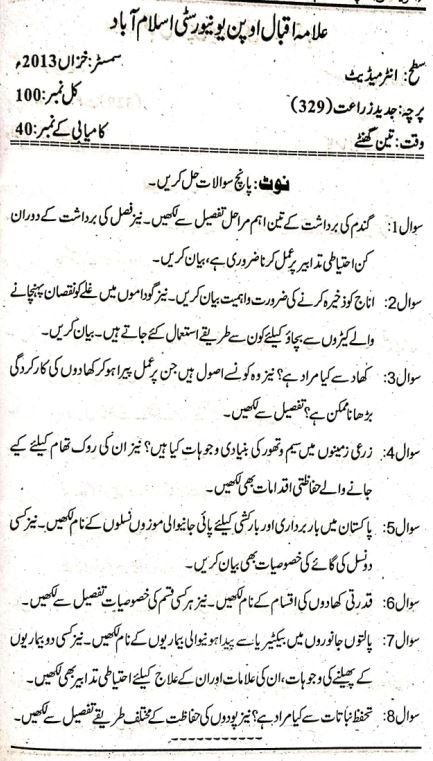 علامہ اقبال اوپن یونیورسٹی اسلام آباد
سطح: انٹرمیڈیٹ سمسٹر: خزاں 2013ء
پرچہ: جدید زراعت (329) کل نمبر: 100
وقت: تین گھنٹے کامیابی کے نمبر: 40
نوٹ: پانچ سوالات حل کریں۔
سوال 1: گندم کی برداشت کے تین اہم مراحل تفصیل سے لکھیں۔ نیز فصل کی برداشت کے دوران
کن احتیاطی تدابیر پر عمل کرنا ضروری ہے، بیان کریں۔
سوال 2: اناج کو ذخیرہ کرنے کی ضرورت و اہمیت بیان کریں۔ نیز گوداموں میں غلے کو نقصان پہنچانے
والے کیڑوں سے بچاؤ کیلئے کون سے طریقے استعمال کئے جاتے ہیں۔ بیان کریں۔
سوال 3: کھاد سے کیا مراد ہے؟ نیز وہ کونسے اصول ہیں جن پر عمل پیرا ہو کر کھادوں کی کارکردگی
بڑھانا ممکن ہے؟ تفصیل سے لکھیں۔
سوال 4: زرعی زمینوں میں سیم و تھور کی بنیادی وجوہات کیا ہیں؟ نیز ان کی روک تھام کیلئے کیے
جانے والے حفاظتی اقدامات بھی لکھیں۔
سوال 5: پاکستان میں بار برداری اور بارکشی کیلئے پائی جانیوالی موزوں نسلوں کے نام لکھیں۔ نیز کسی
دو نسل کی گائے کی خصوصیات بھی بیان کریں۔
سوال 6: قدرتی کھادوں کی اقسام کے نام لکھیں۔ نیز ہر کسی قسم کی خصوصیات تفصیل سے لکھیں۔
سوال 7: پالتوں جانوروں میں بیکٹیریا سے پیدا ہونیوالی بیماریوں کے نام لکھیں۔ نیز کسی دو بیماریوں
کے پھیلنے کی وجوہات، ان کی علامات اور ان کے علاج کیلئے احتیاطی تدابیر بھی لکھیں۔
سوال 8: تحفظ نباتات سے کیا مراد ہے؟ نیز پودوں کی حفاظت کے مختلف طریقے تفصیل سے لکھیں۔